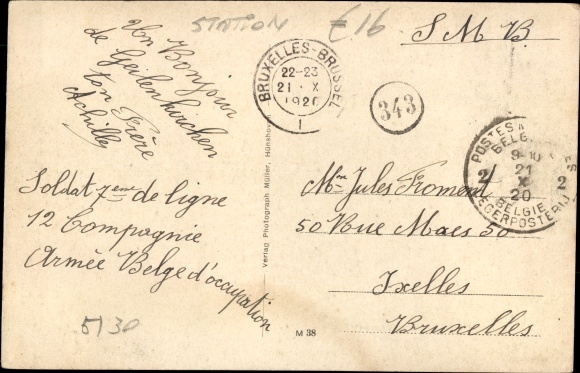 STATION
£16
S M B
Un Bonjour
de Geilenkirchen
ton Frère
Achille
BRUXELLES-BRUSSEL
22-23
21 X
1920
1
343
POSTES
BELG
9-10
21
X
20
2 2
BELGIE
LEGERPOSTERIJ
Soldat 7eme de ligne
12 Compagnie
Armée Belge d'occupation
Verlag Photograph Müller, Hünshoven
Mr Jules Froment
50 Rue Maes 50
Ixelles
Bruxelles
5130
M 38